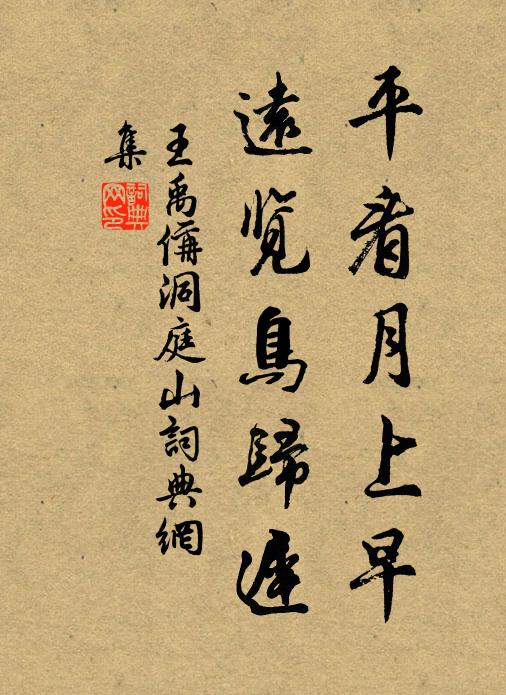 平看月上早
遠覽鳥歸遲
王禹偁洞庭山詞典網
集
詞典網印